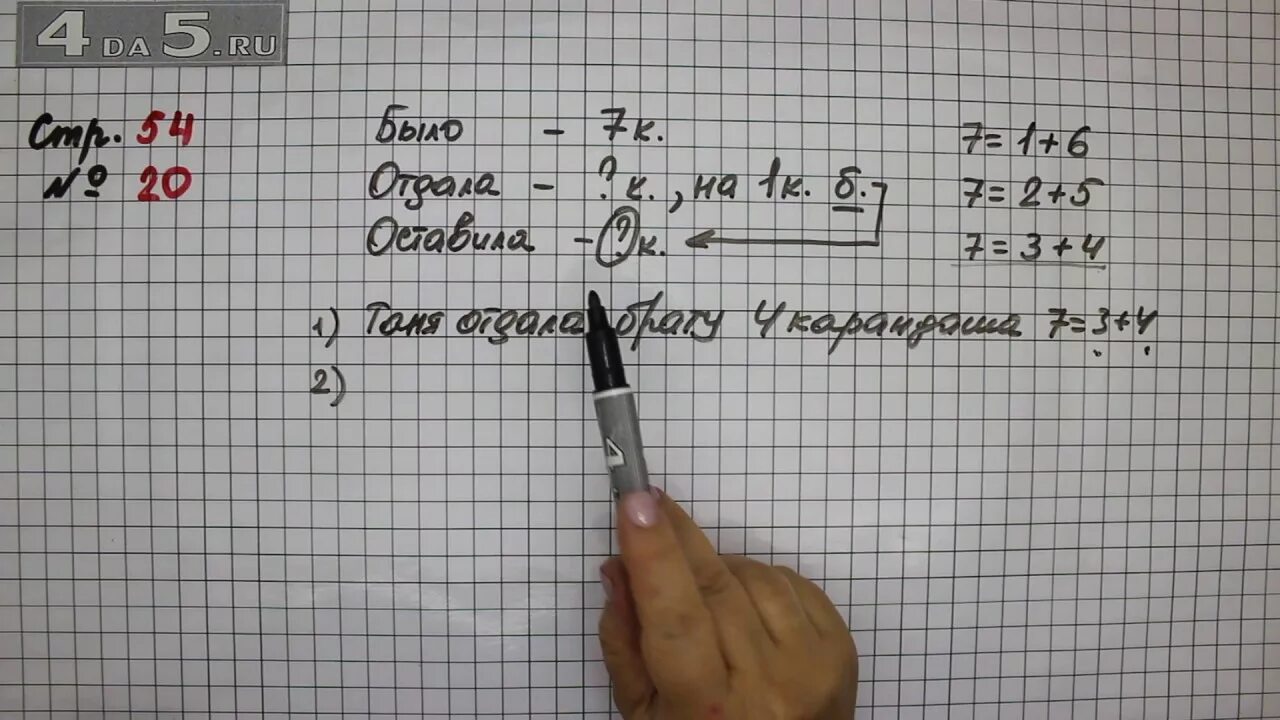 4DA5.RU
Стр. 54
№ 20
Было - 7к.
Отдала - ?к., на 1к. б.
Оставила - ?к.
7=1+6
7=2+5
7=3+4
1) Таня отдала брату 4 карандаша 7=3+4
2)